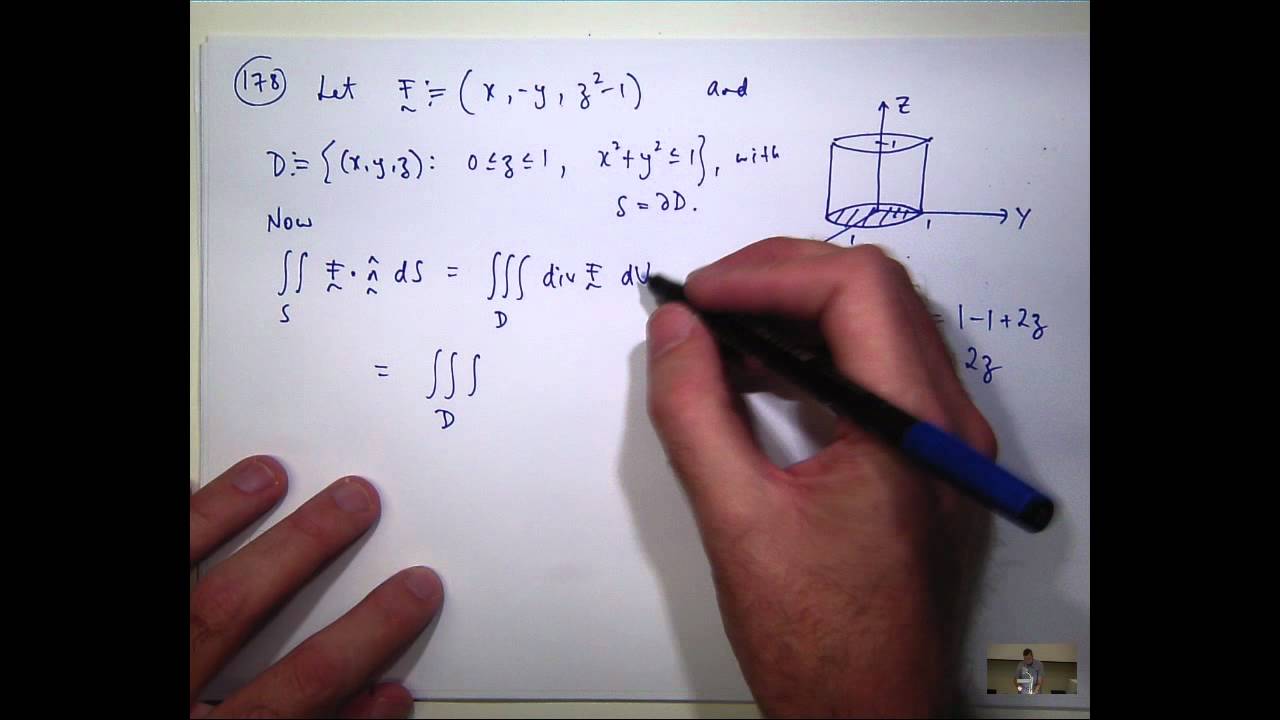 178 Let F := (x, -y, z²-1) and
D := {(x,y,z): 0 ≤ z ≤ 1, x²+y² ≤ 1}, with
S = ∂D.
Now
∬_S F · n̂ dS = ∭_D div F dV
= ∭_D
Z
1
Y
1
1
= 1-1+2z
2z